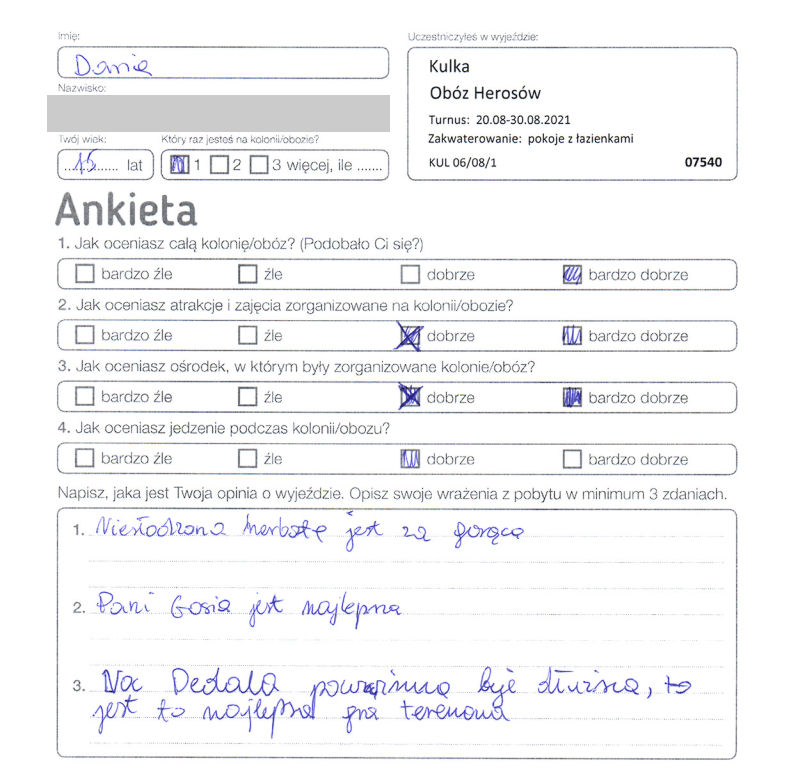 Imię:
Dania
Nazwisko:
Twój wiek:
15 lat
Który raz jesteś na kolonii/obozie?
1 2 3 więcej, ile .......
Uczestniczyłeś w wyjeździe:
Kulka
Obóz Herosów
Turnus: 20.08-30.08.2021
Zakwaterowanie: pokoje z łazienkami
KUL 06/08/1 07540
Ankieta
1. Jak oceniasz całą kolonię/obóz? (Podobało Ci się?)
bardzo źle źle dobrze bardzo dobrze
2. Jak oceniasz atrakcje i zajęcia zorganizowane na kolonii/obozie?
bardzo źle źle dobrze bardzo dobrze
3. Jak oceniasz ośrodek, w którym były zorganizowane kolonie/obóz?
bardzo źle źle dobrze bardzo dobrze
4. Jak oceniasz jedzenie podczas kolonii/obozu?
bardzo źle źle dobrze bardzo dobrze
Napisz, jaka jest Twoja opinia o wyjeździe. Opisz swoje wrażenia z pobytu w minimum 3 zdaniach.
1. Niesłodzona herbatę jest za gorąca
2. Pani Gosia jest najlepsza
3. Noc Dedala powinna być dłuższa, to
jest to najlepsza gra terenowa